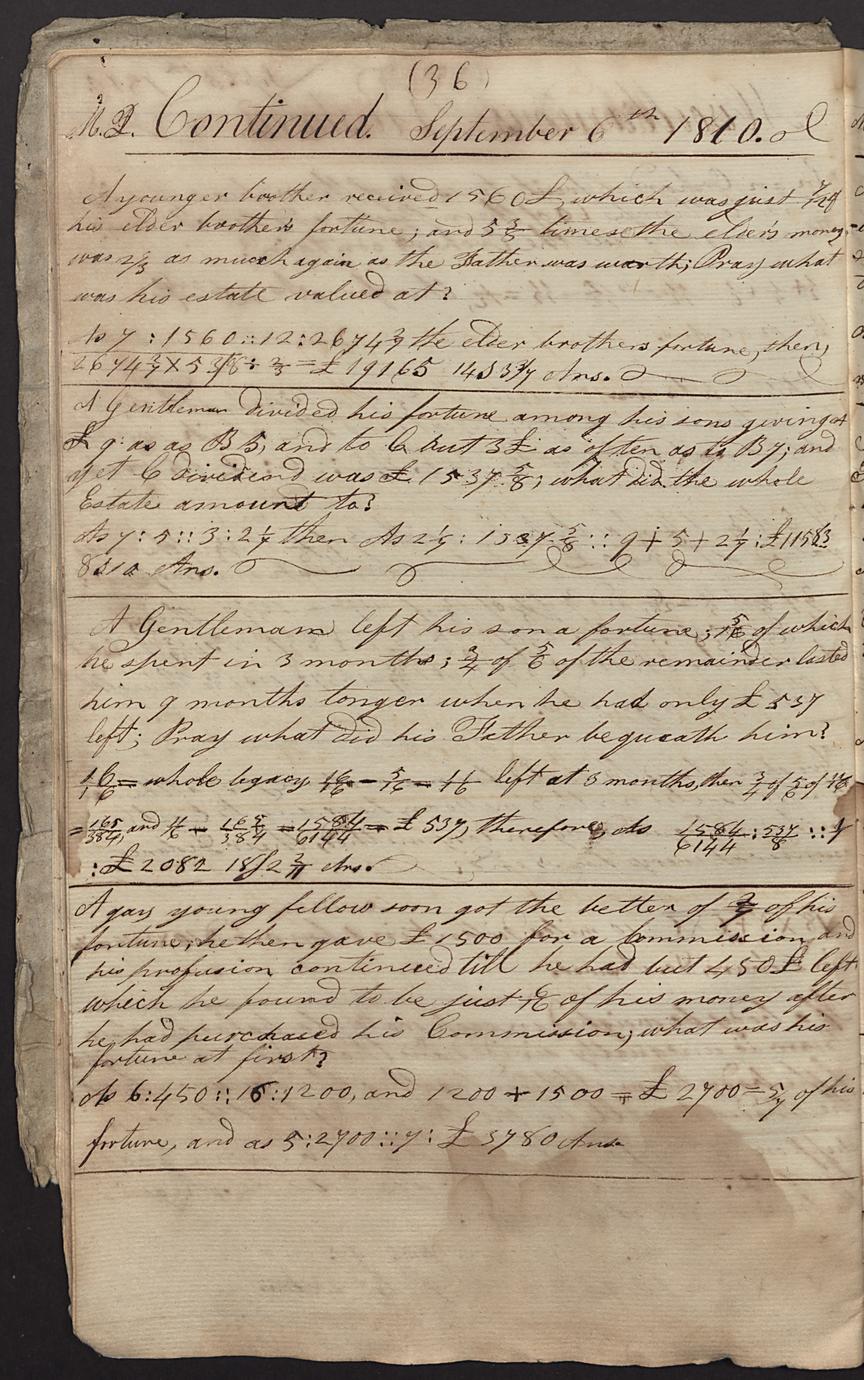 (36)
M.Q. Continued. September 6th 1810.
A younger brother received 1560£, which was just 7/12 of
his elder brother's fortune; and 5 3/8 times the elder's money
was 2/3 as much again as the Father was worth; Pray what
was his estate valued at?
As 7 : 1560 :: 12 : 2674 2/7 the elder brothers fortune, then,
2674 2/7 × 5 3/8 ÷ 2/3 = £ 19165 14s 3 3/7 Ans.
A Gentleman divided his fortune among his sons giving A
£ 9 as as B 5, and to C but 3£ as often as to B 7; and
yet C dividend was £ 1537 5/8; what did the whole
Estate amount to?
As 7 : 5 :: 3 : 2 1/7 then As 2 1/7 : 1537 5/8 :: 9 + 5 + 2 1/7 : £11583
8s 10 Ans.
A Gentleman left his son a fortune; 5/16 of which
he spent in 3 months; 3/4 of 5/6 of the remainder lasted
him 9 months longer when he had only £ 537
left; Pray what did his Father bequeath him?
16/16 = whole legacy 16/16 - 5/16 = 11/16 left at 3 months, then 3/4 of 5/6 of 11/16
= 165/384, and 11/16 - 165/384 = 1584/6144 = £ 537, therefore, As 1584/6144 : 537 ::
: £ 2082 18s 2 2/11 Ans.
A gay young fellow soon got the better of 2/7 of his
fortune; he then gave £ 1500 for a Commission, and
his profusion continued till he had but 450£ left
which he found to be just 6/16 of his money after
he had purchased his Commission; what was his
fortune at first?
As 6 : 450 :: 16 : 1200, and 1200 + 1500 = £ 2700 = 5/7 of his
fortune, and as 5 : 2700 :: 7 : £ 3780 Ans